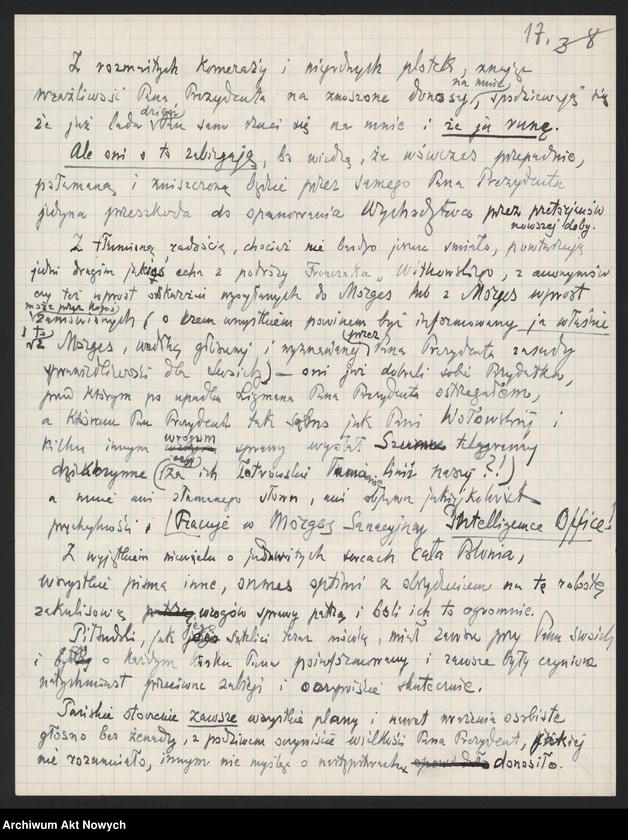 17. 3 8
Z rozmaitych komeraży i niegodnych plotek, znając
na mnie
wrażliwość Pana Prezydenta na znoszone donosy, spodziewają się
drugi
że już lada Pan sam rzuci się na mnie i że ja runę.
Ale oni o to zabiegają, bo wiedzą, że wówczas przepadnie,
połamaną i zniszczoną będzie przez samego Pana Prezydenta
jedyna przeszkoda do opanowania Wychodźtwa przez pretorjanów
nowszej doby.
Z tłumioną radością, chociaż nie bardzo jeszcze śmiało, powtarzają
jedni drugim jakieś echa z podróży Witkowskiego, z anonymów
czy też wprost oskarżeń wysyłanych do Morges lub z Morges wprost
może przez kogoś
zamówionych (o czem wszystkiem powinien być informowany ja właśnie
i to przez
z Morges, według głoszonej i wyznawanej Pana Prezydenta zasady
sprawiedliwości dla swoich) — oni już dobrali sobie Brydatka,
przed którym po upadku Ligmana Pana Prezydenta ostrzegałem,
a któremu Pan Prezydent tak samo jak Pani Wołowskiej i
wrogom
kilku innym sprawy wysłał telegramy
dziękczynne (za ich łotrowskie naszej?!)
a mnie ani złamanego słowa, ani objawu jakiejkolwiek
przychylności. (Pracuje w Morges Sanacyjny Intelligence Office!
Z wyjątkiem niewielu o jadowitych sercach cała Polonia,
wszystkie pisma inne, z obrzydzeniem na tę robotę
zakulisową wrogów sprawy patrzą i boli ich to ogromnie.
jego
Piłsudski, jak teraz mówią, miał zawsze przy Panu swoich
i był o każdym kroku Pana poinformowany i zawsze były czynione
natychmiast przeciwne zabiegi i oczywiście skutecznie.
Pańskie otoczenie zawsze wszystkie plany i nawet wrażenia osobiste
głosno bez żenady, z podziwem oczywiście wielkości Pana Prezydenta, jakiej
nie rozumiało, innym nie myśląc o następstwach donosiło.
Archiwum Akt Nowych